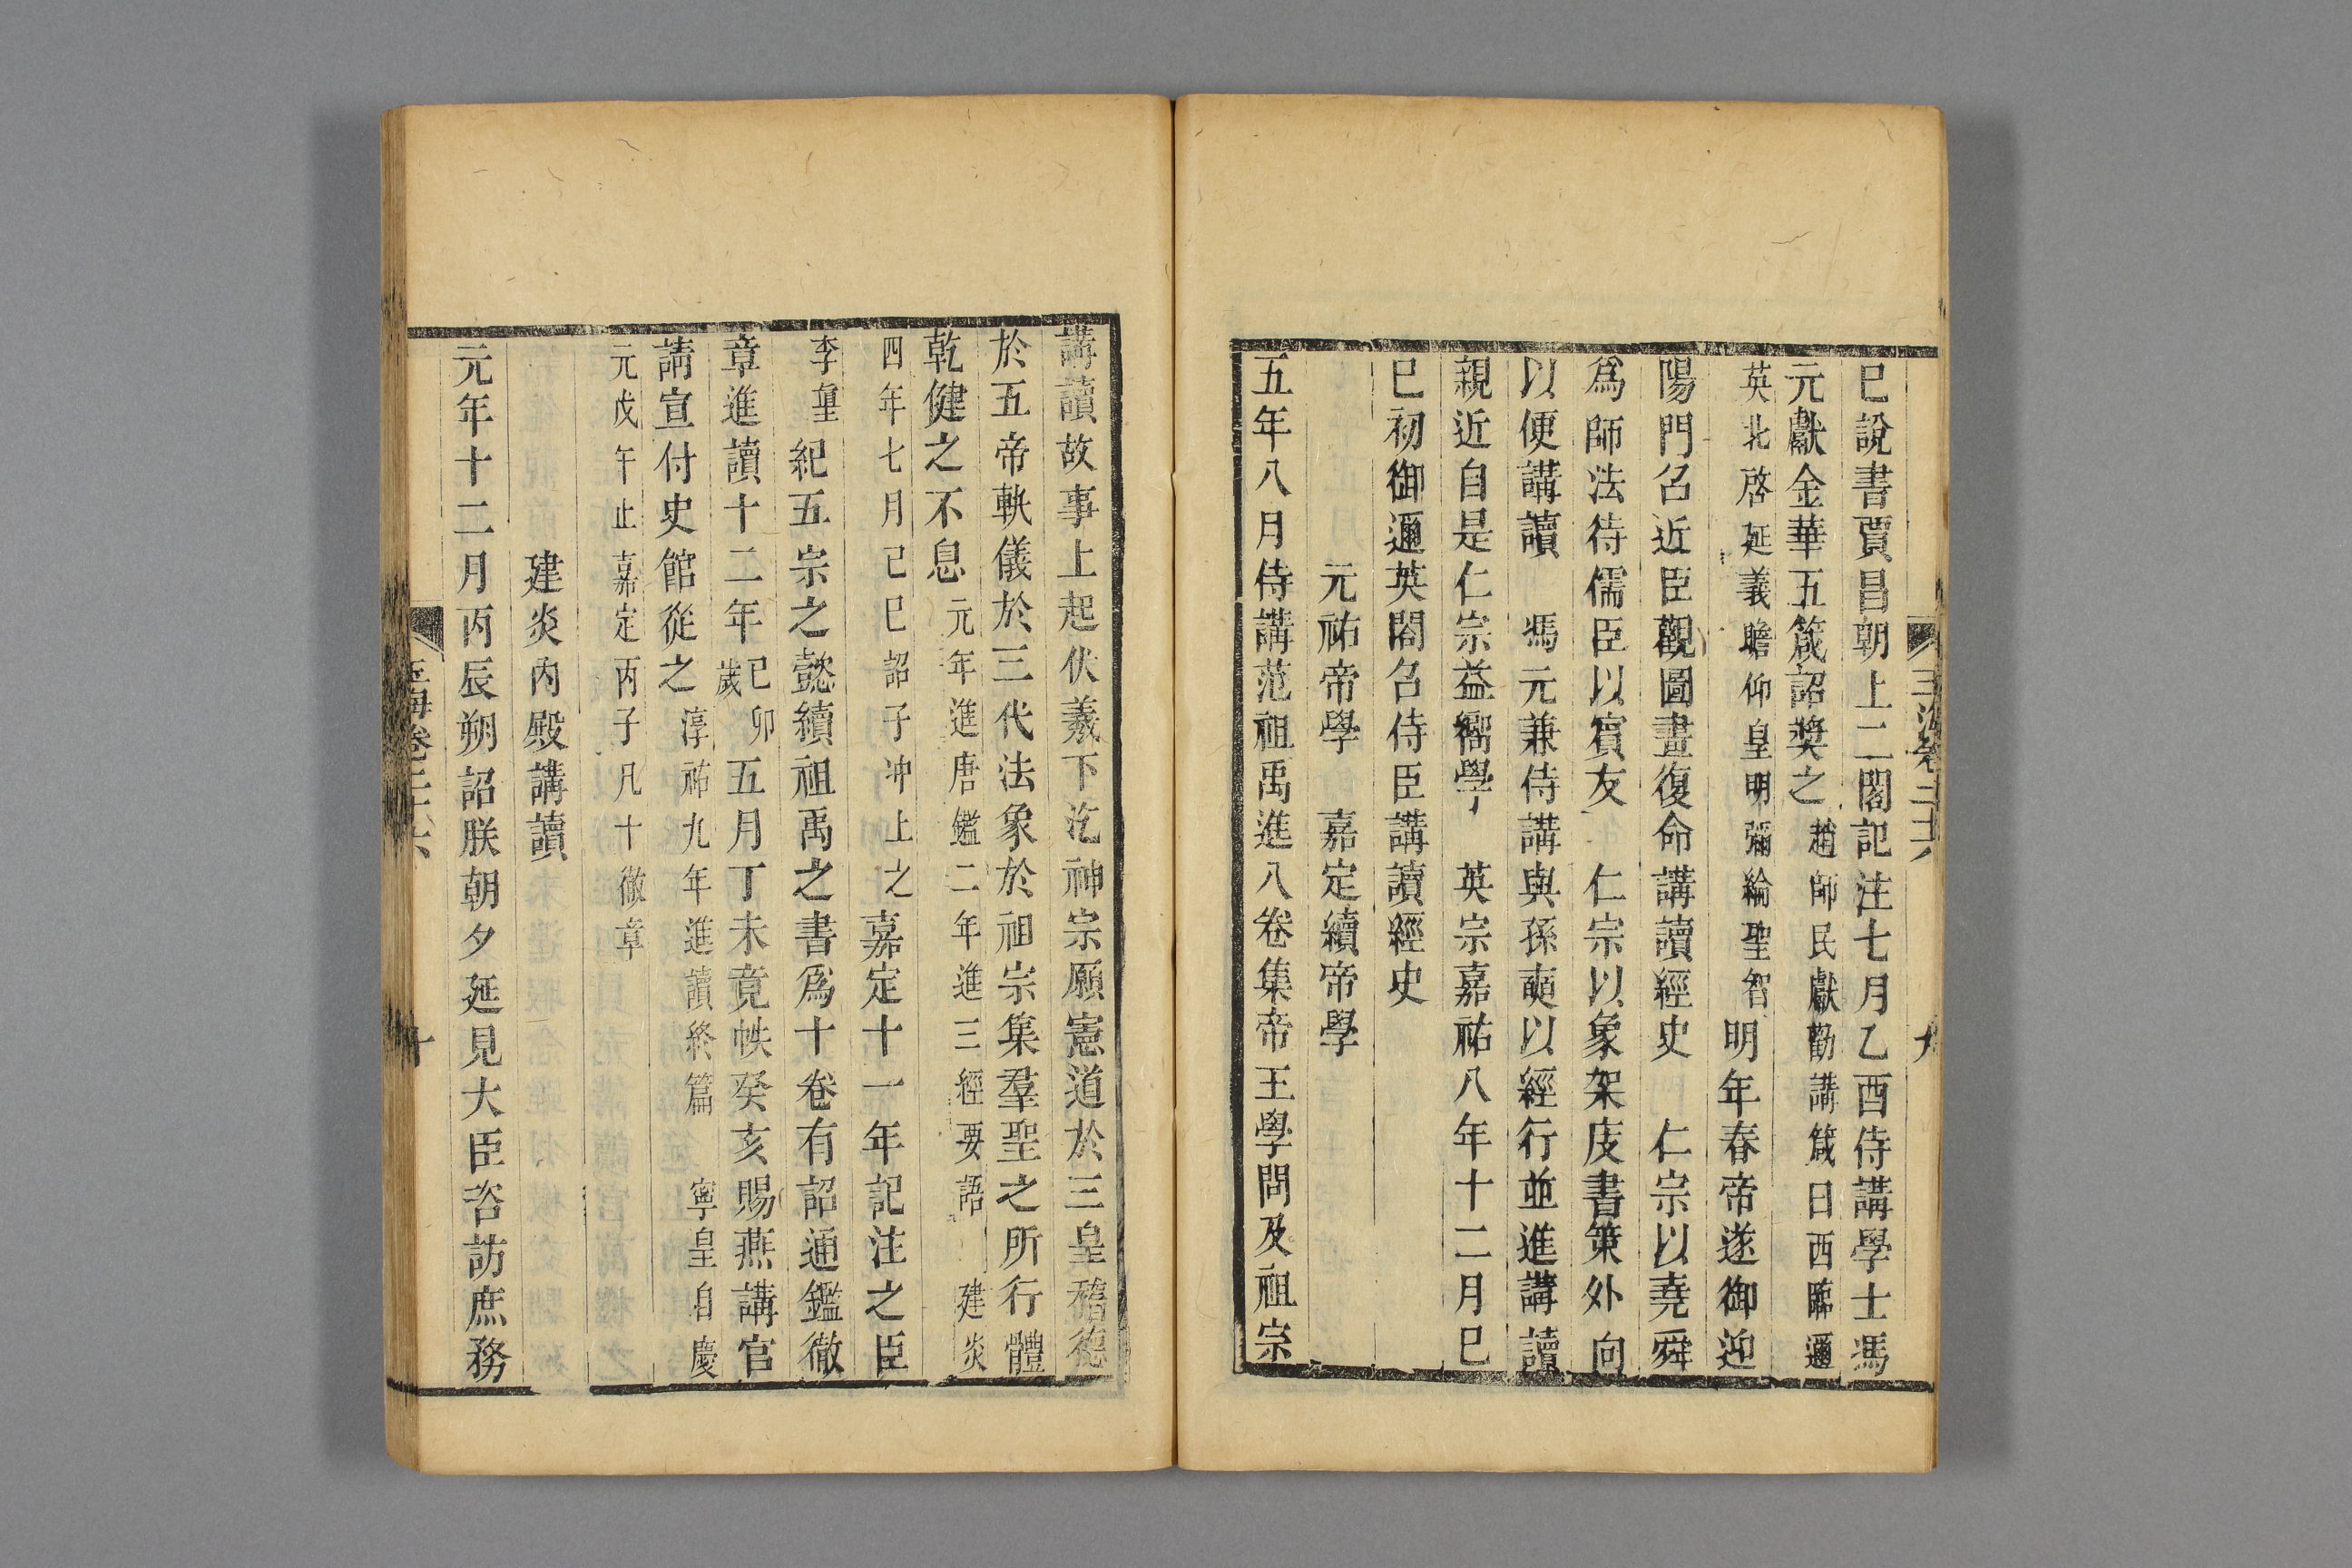 玉海卷二十六
九
已說書賈昌朝上二閣記注七月乙酉侍講學士馮
元獻金華五箴詔奬之趙師民獻勸講箴曰西臨邇
英北啓延義瞻仰皇明彌綸聖智明年春帝遂御迎
陽門召近臣觀圖畫復命講讀經史 仁宗以堯舜
爲師法待儒臣以賓友 仁宗以象架庋書策外向
以便講讀 馮元兼侍講與孫奭以經行並進講讀
親近自是仁宗益嚮學 英宗嘉祐八年十二月巳
巳初御邇英閣召侍臣講讀經史
元祐帝學 嘉定續帝學
五年八月侍講范祖禹進八卷集帝王學問及祖宗
講讀故事上起伏羲下汔神宗願憲道於三皇稽德
於五帝軌儀於三代法象於祖宗集羣聖之所行體
乾健之不息元年進唐鑑二年進三經要語 建炎
四年七月己巳詔子冲上之嘉定十一年記注之臣
李㙺紀五宗之懿續祖禹之書爲十卷有詔通鑑徹
章進讀十二年己卯歲五月丁未竟帙癸亥賜燕講官
請宣付史館從之淳祐九年進讀終篇 寧皇自慶
元戊午止嘉定丙子凡十徹章
建炎內殿講讀
元年十二月丙辰朔詔朕朝夕延見大臣咨訪庶務
玉海卷二十六
十